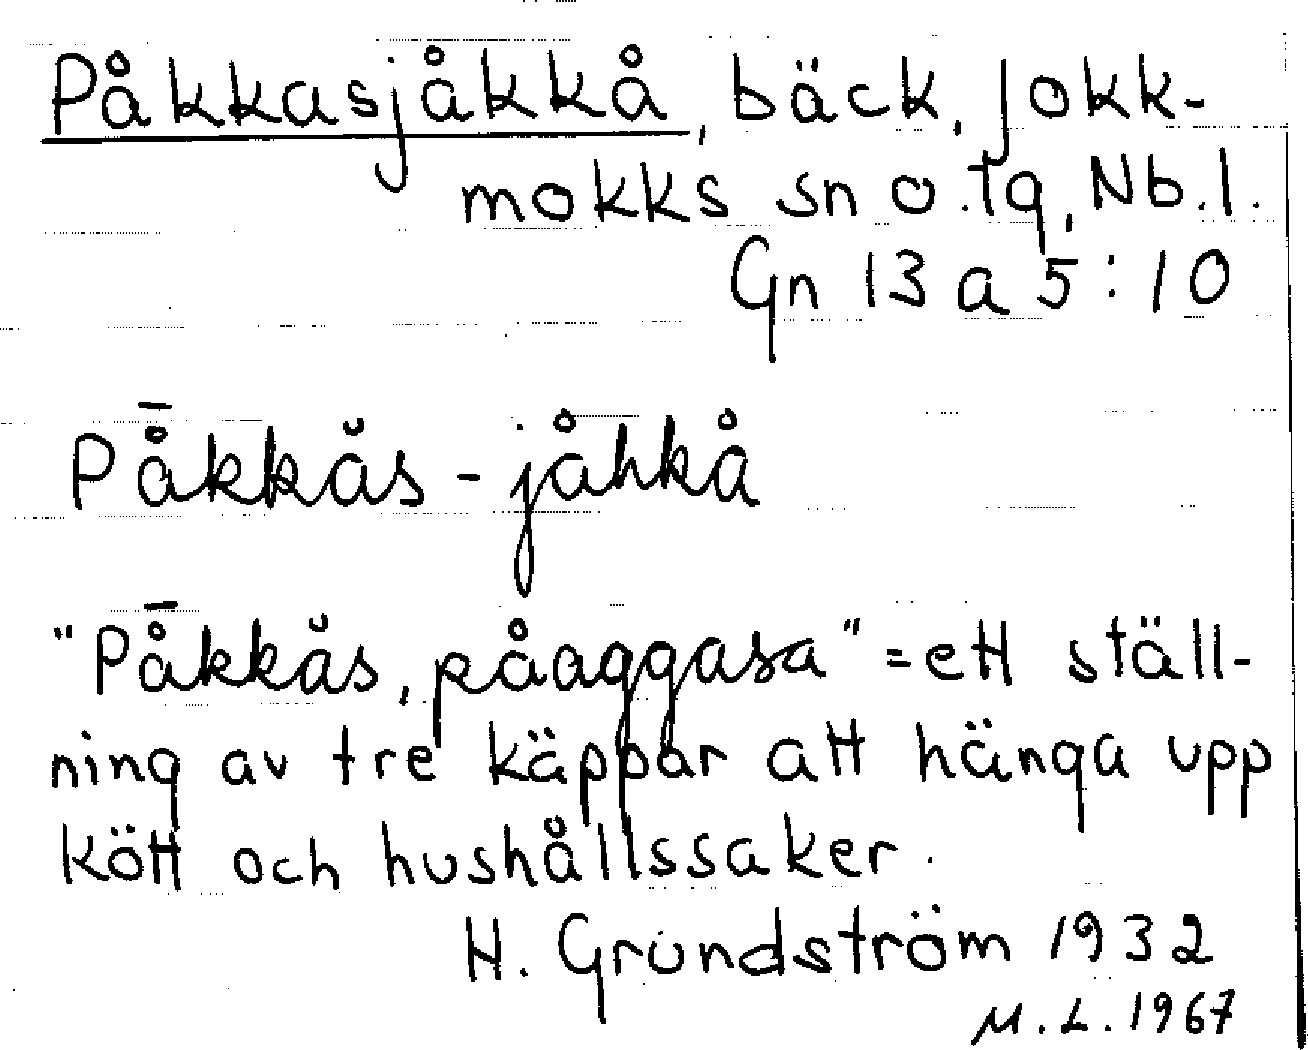 Påkkasjåkkå, bäck, Jokk-
mokks sn o. tg, Nb. l.
Gn 13 a 5:10
På̄kkăs-jåhkå
"På̄kkăs, påaggasa" = ett ställ-
ning av tre käppar att hänga upp
kött och hushållssaker.
H. Grundström 1932
M. L. 1967